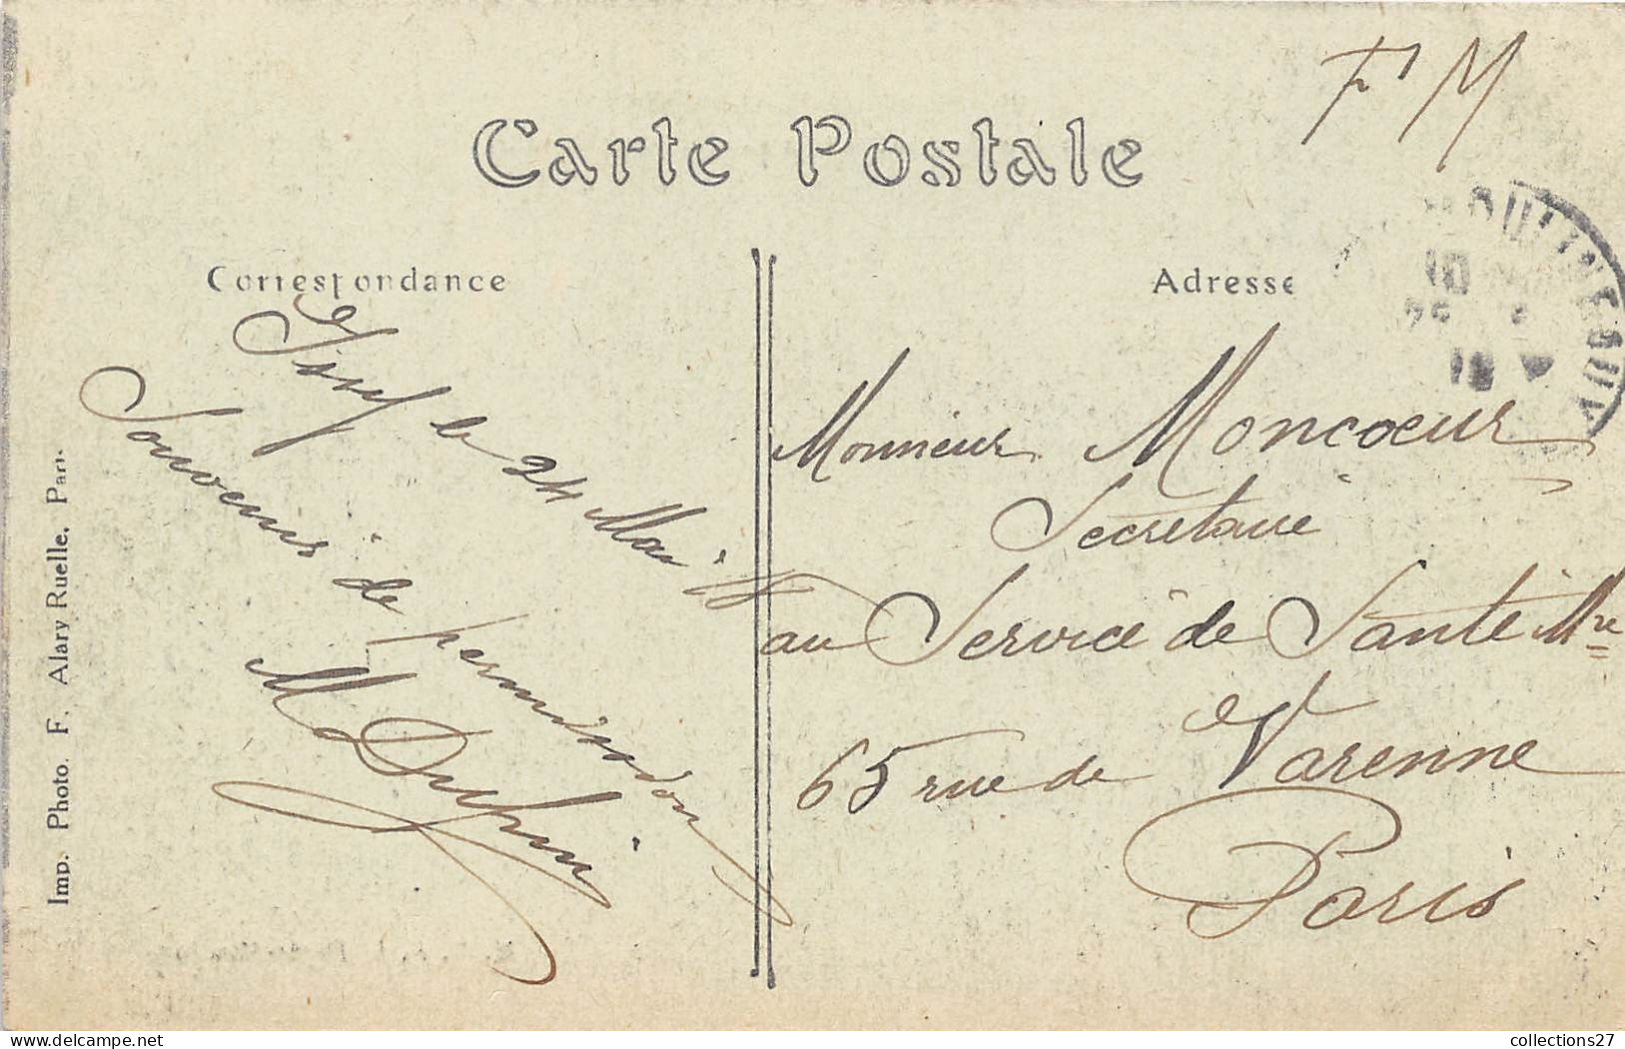 F M
Carte Postale
Correspondance
Adresse
le 24 Mai 18
Souvenir de permission
M Dupin
Monsieur Moncoeur
Secrétaire
au Service de Santé Mre
65 rue de Varenne
Paris
Imp. Photo. F. Alary Ruelle. Paris
collections27